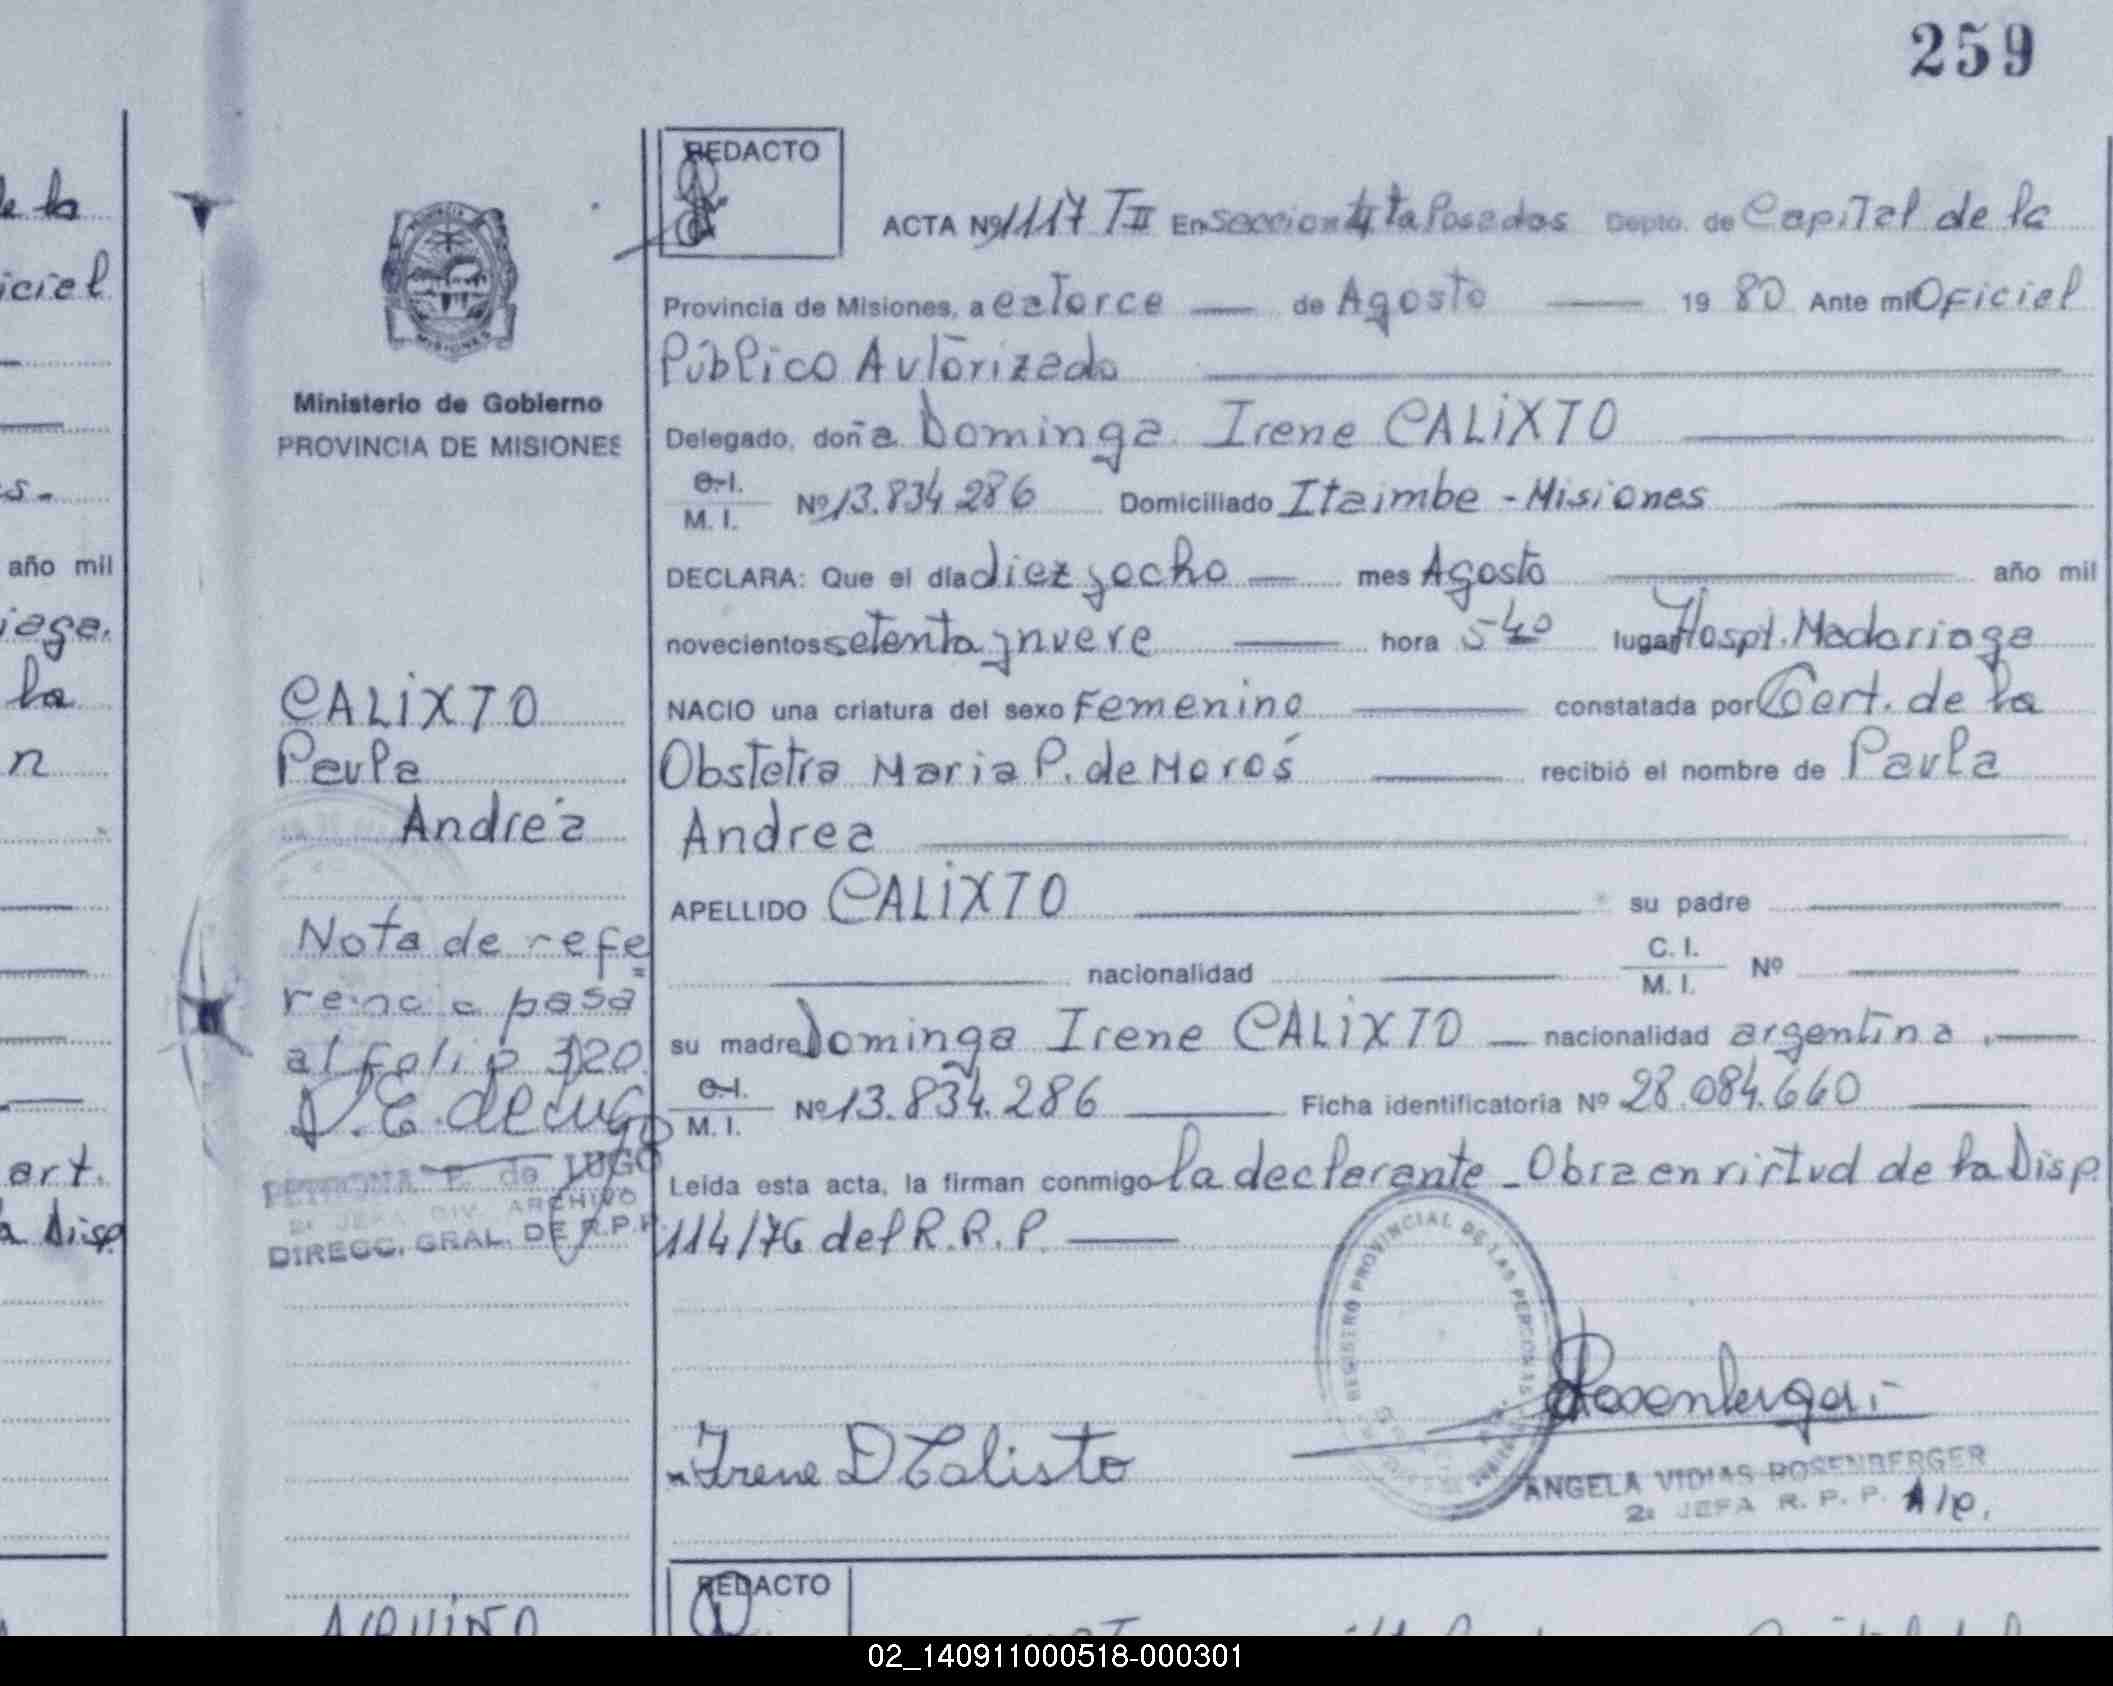 259
REDACTO
ACTA Nº 1117 TII En Seccion 4ta Posadas Depto. de Capital de la
Provincia de Misiones, a catorce de Agosto 1980 Ante mi Oficial
Público Autorizado
Delegado, doña Dominga Irene CALIXTO
C.I.
M. I. Nº 13.834.286 Domiciliado Itaimbe - Misiones
DECLARA: Que el día diez y ocho mes Agosto año mil
novecientos setenta y nueve hora 5 40 lugar Hospt. Madariaga
NACIO una criatura del sexo Femenino constatada por Cert. de la
Obstetra Maria P. de Moros recibió el nombre de Paula
Andrea
APELLIDO CALIXTO su padre
nacionalidad C. I.
M. I. Nº
su madre Dominga Irene CALIXTO nacionalidad argentina
C.I.
M. I. Nº 13.834.286 Ficha identificatoria Nº 28.084.660
Leída esta acta, la firman conmigo la declarante - Obra en virtud de la Disp.
114/76 del R.R.P.
Irene D Calisto
REGISTRO PROVINCIAL DE LAS PERSONAS
Rosenberger
ANGELA VIDIAS ROSENBERGER
2ª JEFA R. P. P. A/c.
PROVINCIA
MISIONES
Ministerio de Gobierno
PROVINCIA DE MISIONES
CALIXTO
Paula
Andrea
Nota de refe=
rencia pasa
al folio 320.
P. E. de Lugo
PETRONA E. de LUGO
2ª JEFA DIV. ARCHIVO
DIRECC. GRAL. DE R.P.P.
de la
icial
s.-
año mil
iaga.
la
n
art.
a Disp
REDACTO
AQUINO
02_140911000518-000301